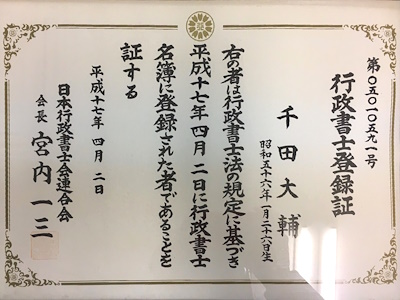 第〇五〇一〇五九一号
行政書士登録証
千田大輔
昭和五十六年一月二十六日生
右の者は行政書士法の規定に基づき
平成十七年四月二日に行政書士
名簿に登録された者であることを
証する
平成十七年四月二日
日本行政書士会連合会
会長 宮内一三